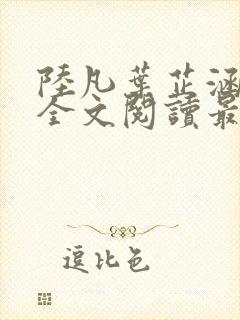 陸凡葉芷涵
全文閱讀最
逗比色